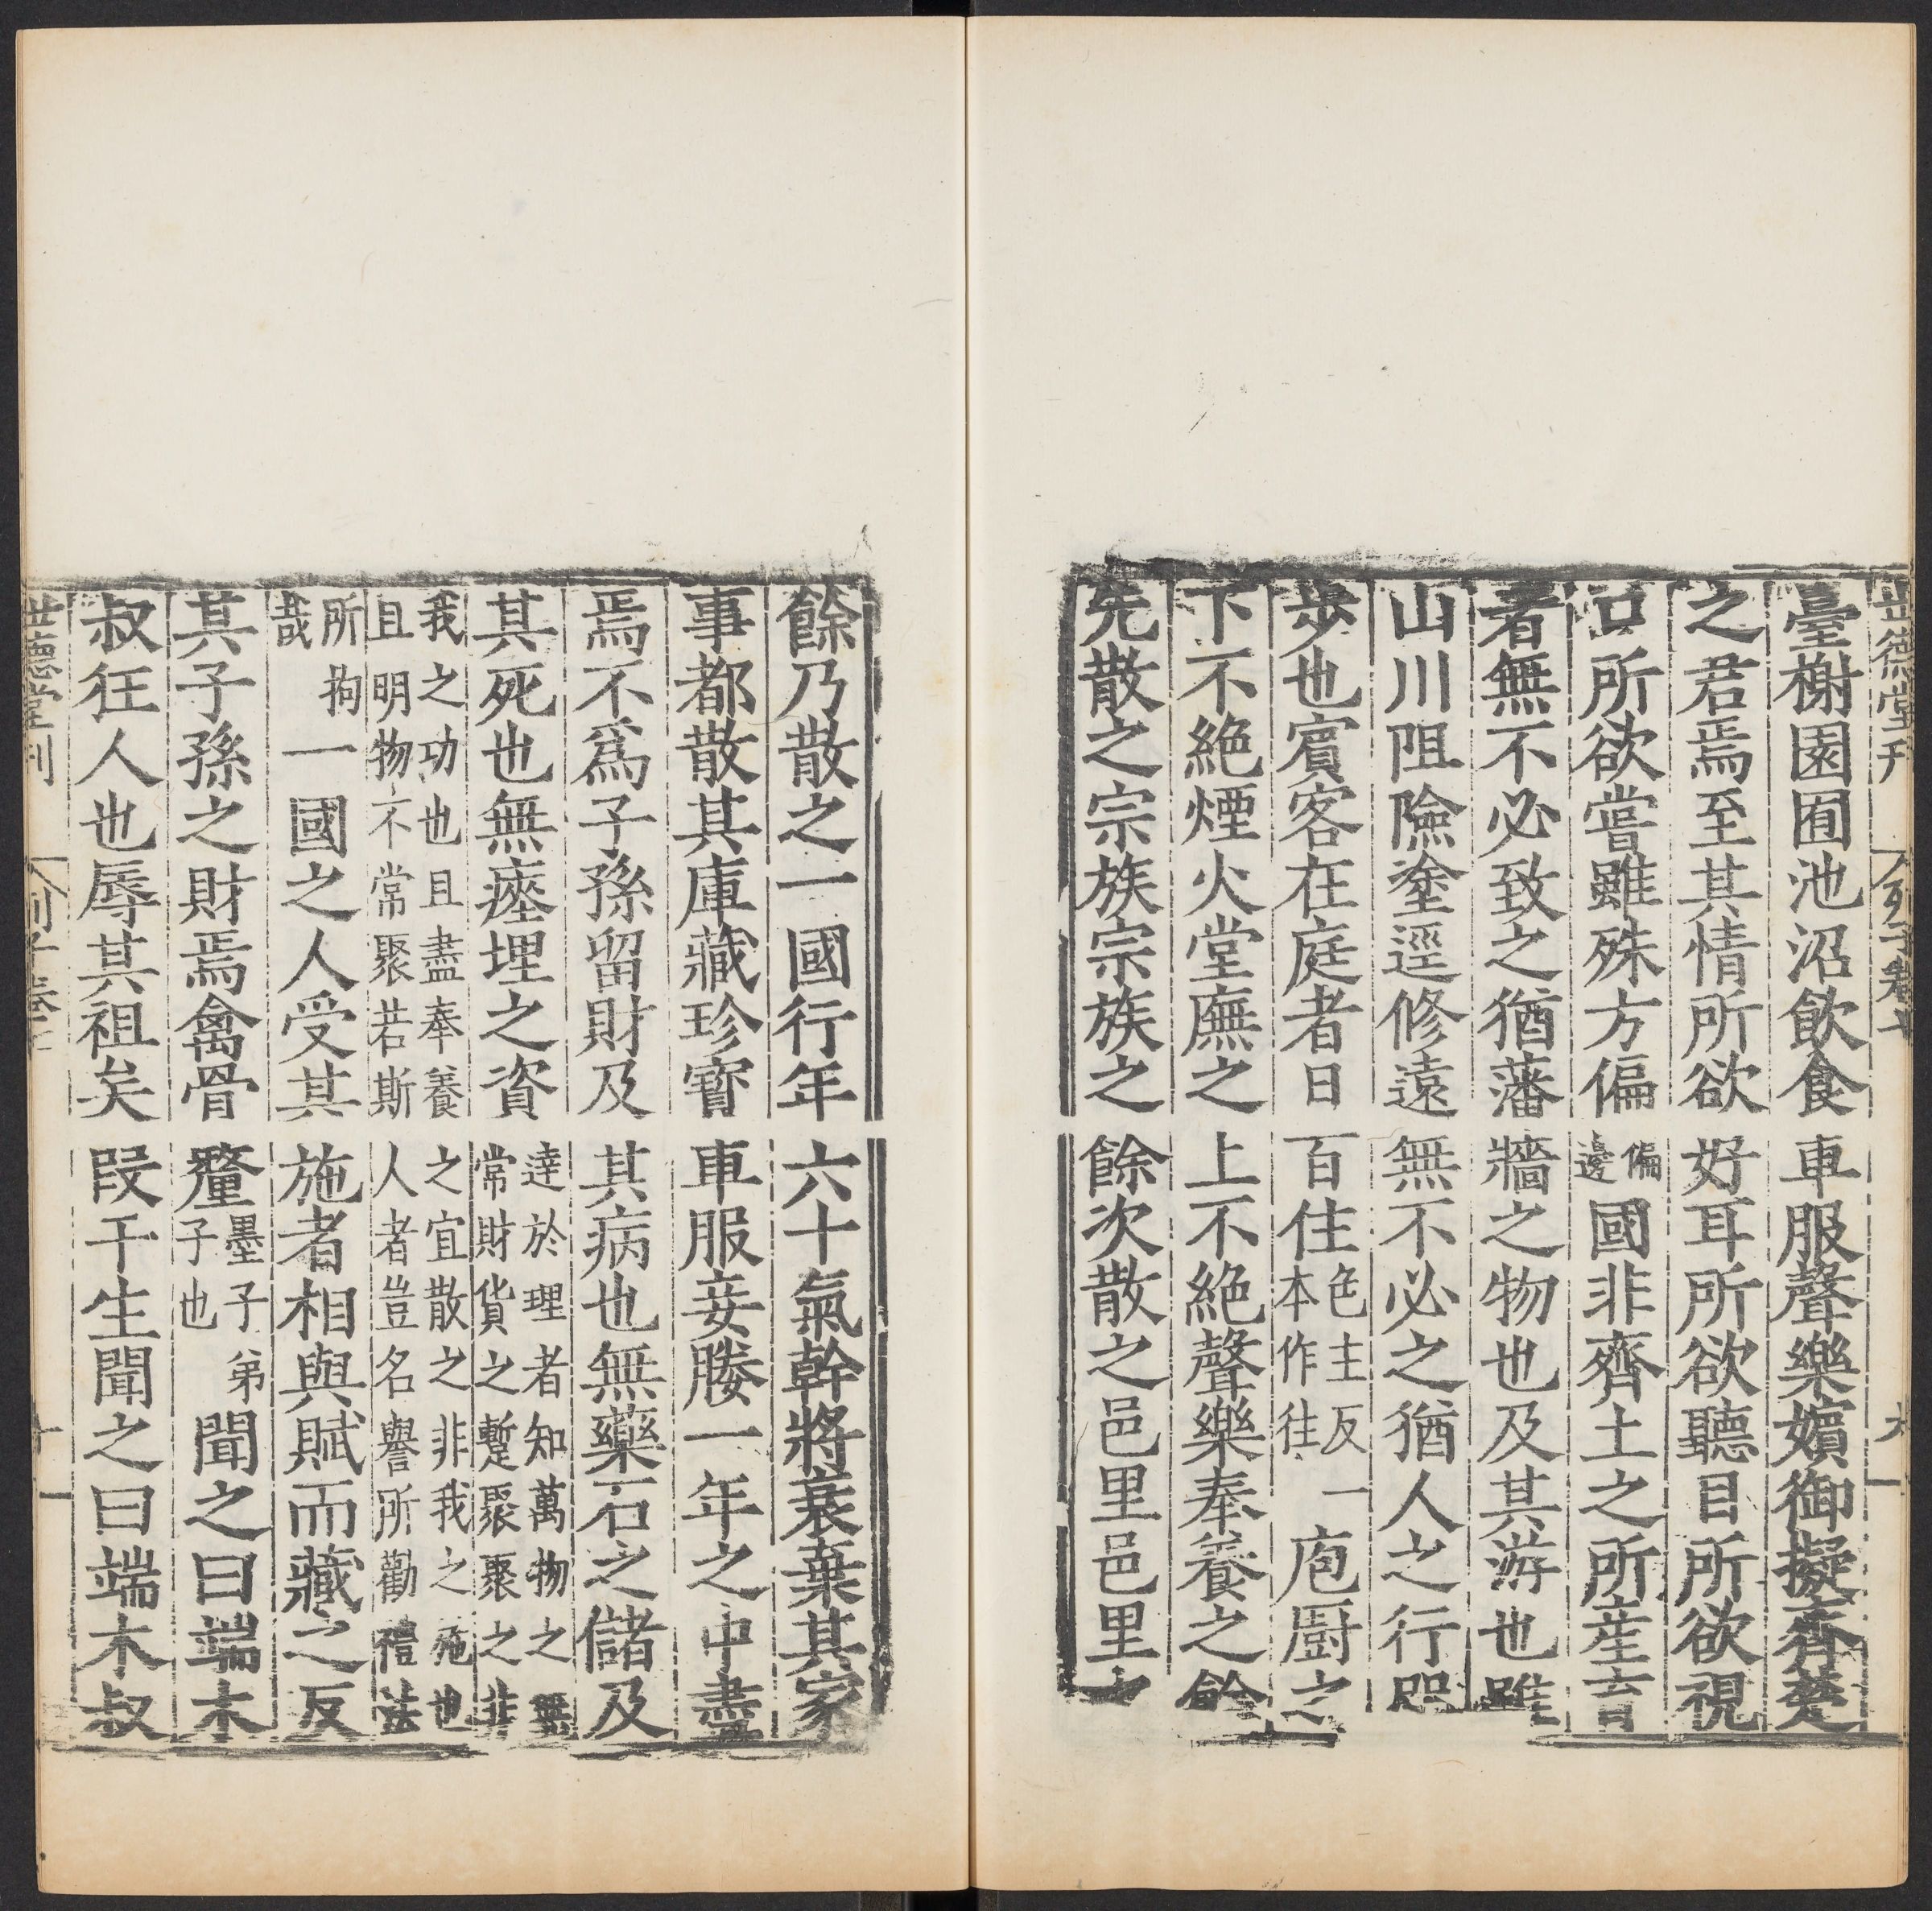 世德堂刊 列子卷七 九
臺榭園囿池沼飲食車服聲樂嬪御擬齊楚
之君焉至其情所欲好耳所欲聽目所欲視
口所欲嘗雖殊方偏偏邊國非齊土之所産育
者無不必致之猶藩牆之物也及其游也雖
山川阻險塗逕修遠無不必之猶人之行咫
步也賓客在庭者日百住色主反一本作往庖厨之
下不絶煙火堂廡之上不絶聲樂奉養之餘
先散之宗族宗族之餘次散之邑里邑里之
餘乃散之一國行年六十氣幹將衰棄其家
事都散其庫藏珍寳車服妾媵一年之中盡
焉不爲子孫留財及其病也無藥石之儲及
其死也無瘞埋之資達於理者知萬物之無常財貨之蹔聚聚之非
我之功也且盡奉養之宜散之非我之施也且明物不常聚若斯人者豈名譽所勸禮法
所拘哉一國之人受其施者相與賦而藏之反
其子孫之財焉禽骨釐墨子弟子也聞之曰端木
叔狂人也辱其祖矣段干生聞之曰端木叔
世德堂刊 列子卷 十